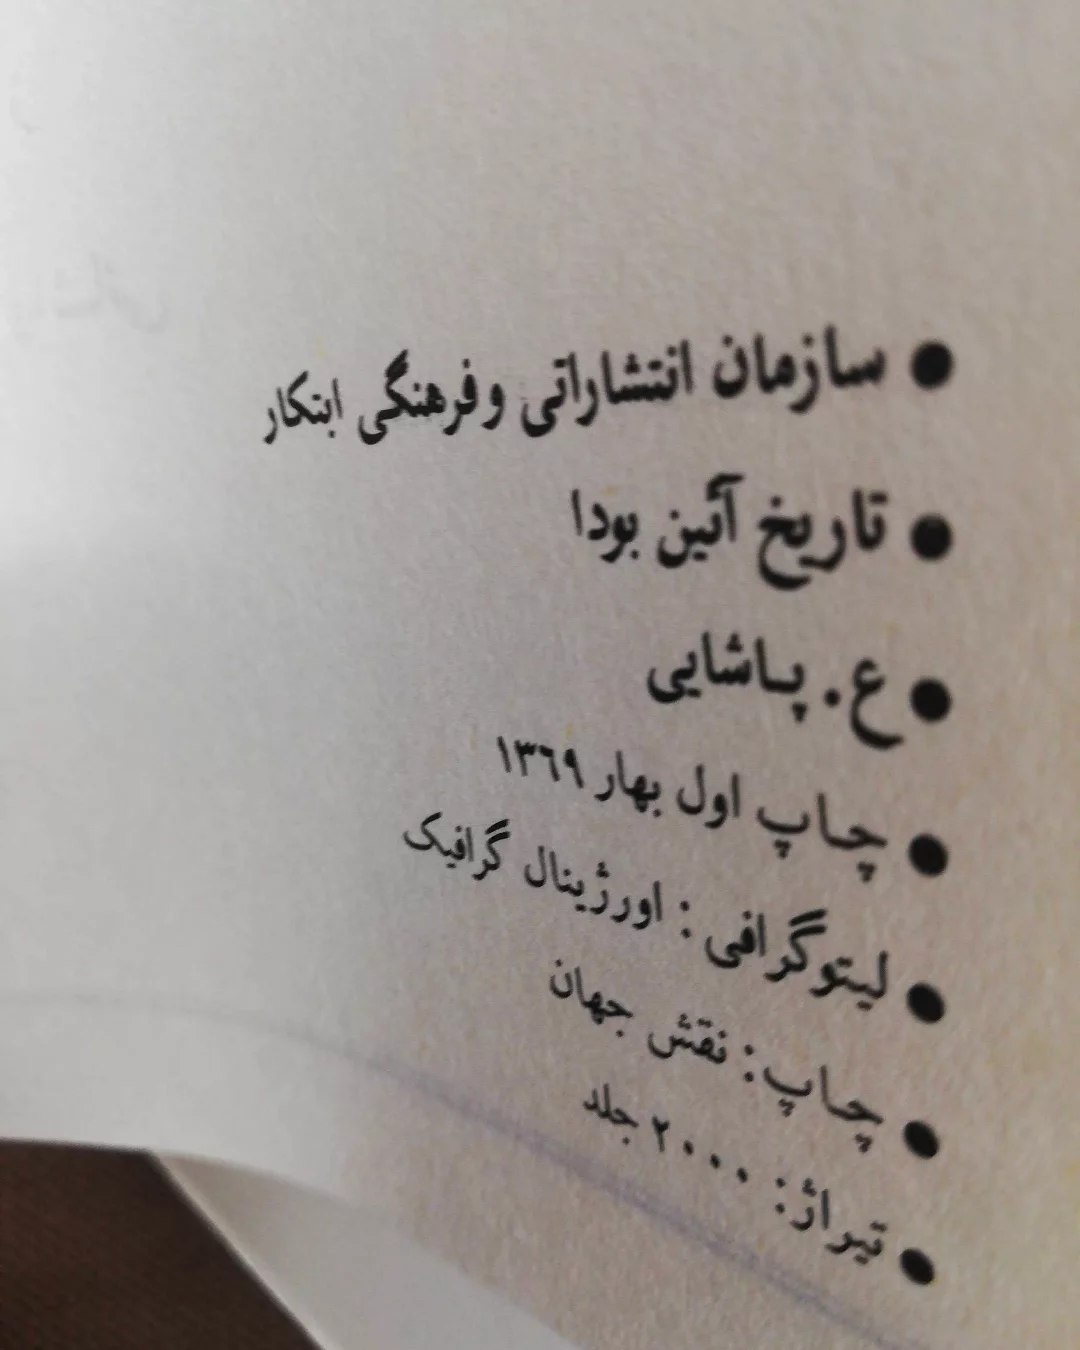 ● سازمان انتشاراتی و فرهنگی ابتکار
● تاریخ آئین بودا
● ع. پاشایی
● چاپ اول بهار ۱۳۶۹
● لیتوگرافی: اورژینال گرافیک
● چاپ: نقش جهان
● تیراژ: ۲۰۰۰ جلد